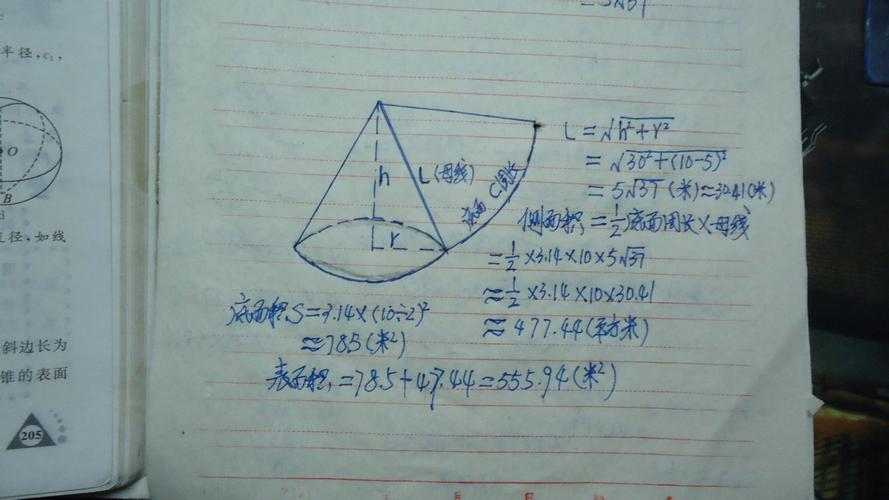 半径,c₁,
O
B
径、如线
斜边长为
锥的表面
205
h
L(母线)
底面C周长
r
L=√h²+r²
=√30²+(10-5)²
=5√37(米)≈30.41(米)
侧面积=½底面周长×母线
=½×3.14×10×5√37
≈½×3.14×10×30.41
≈477.44(平方米)
底面积S=3.14×(10÷2)²
≈78.5(米²)
表面积=78.5+47.44=555.94(米²)